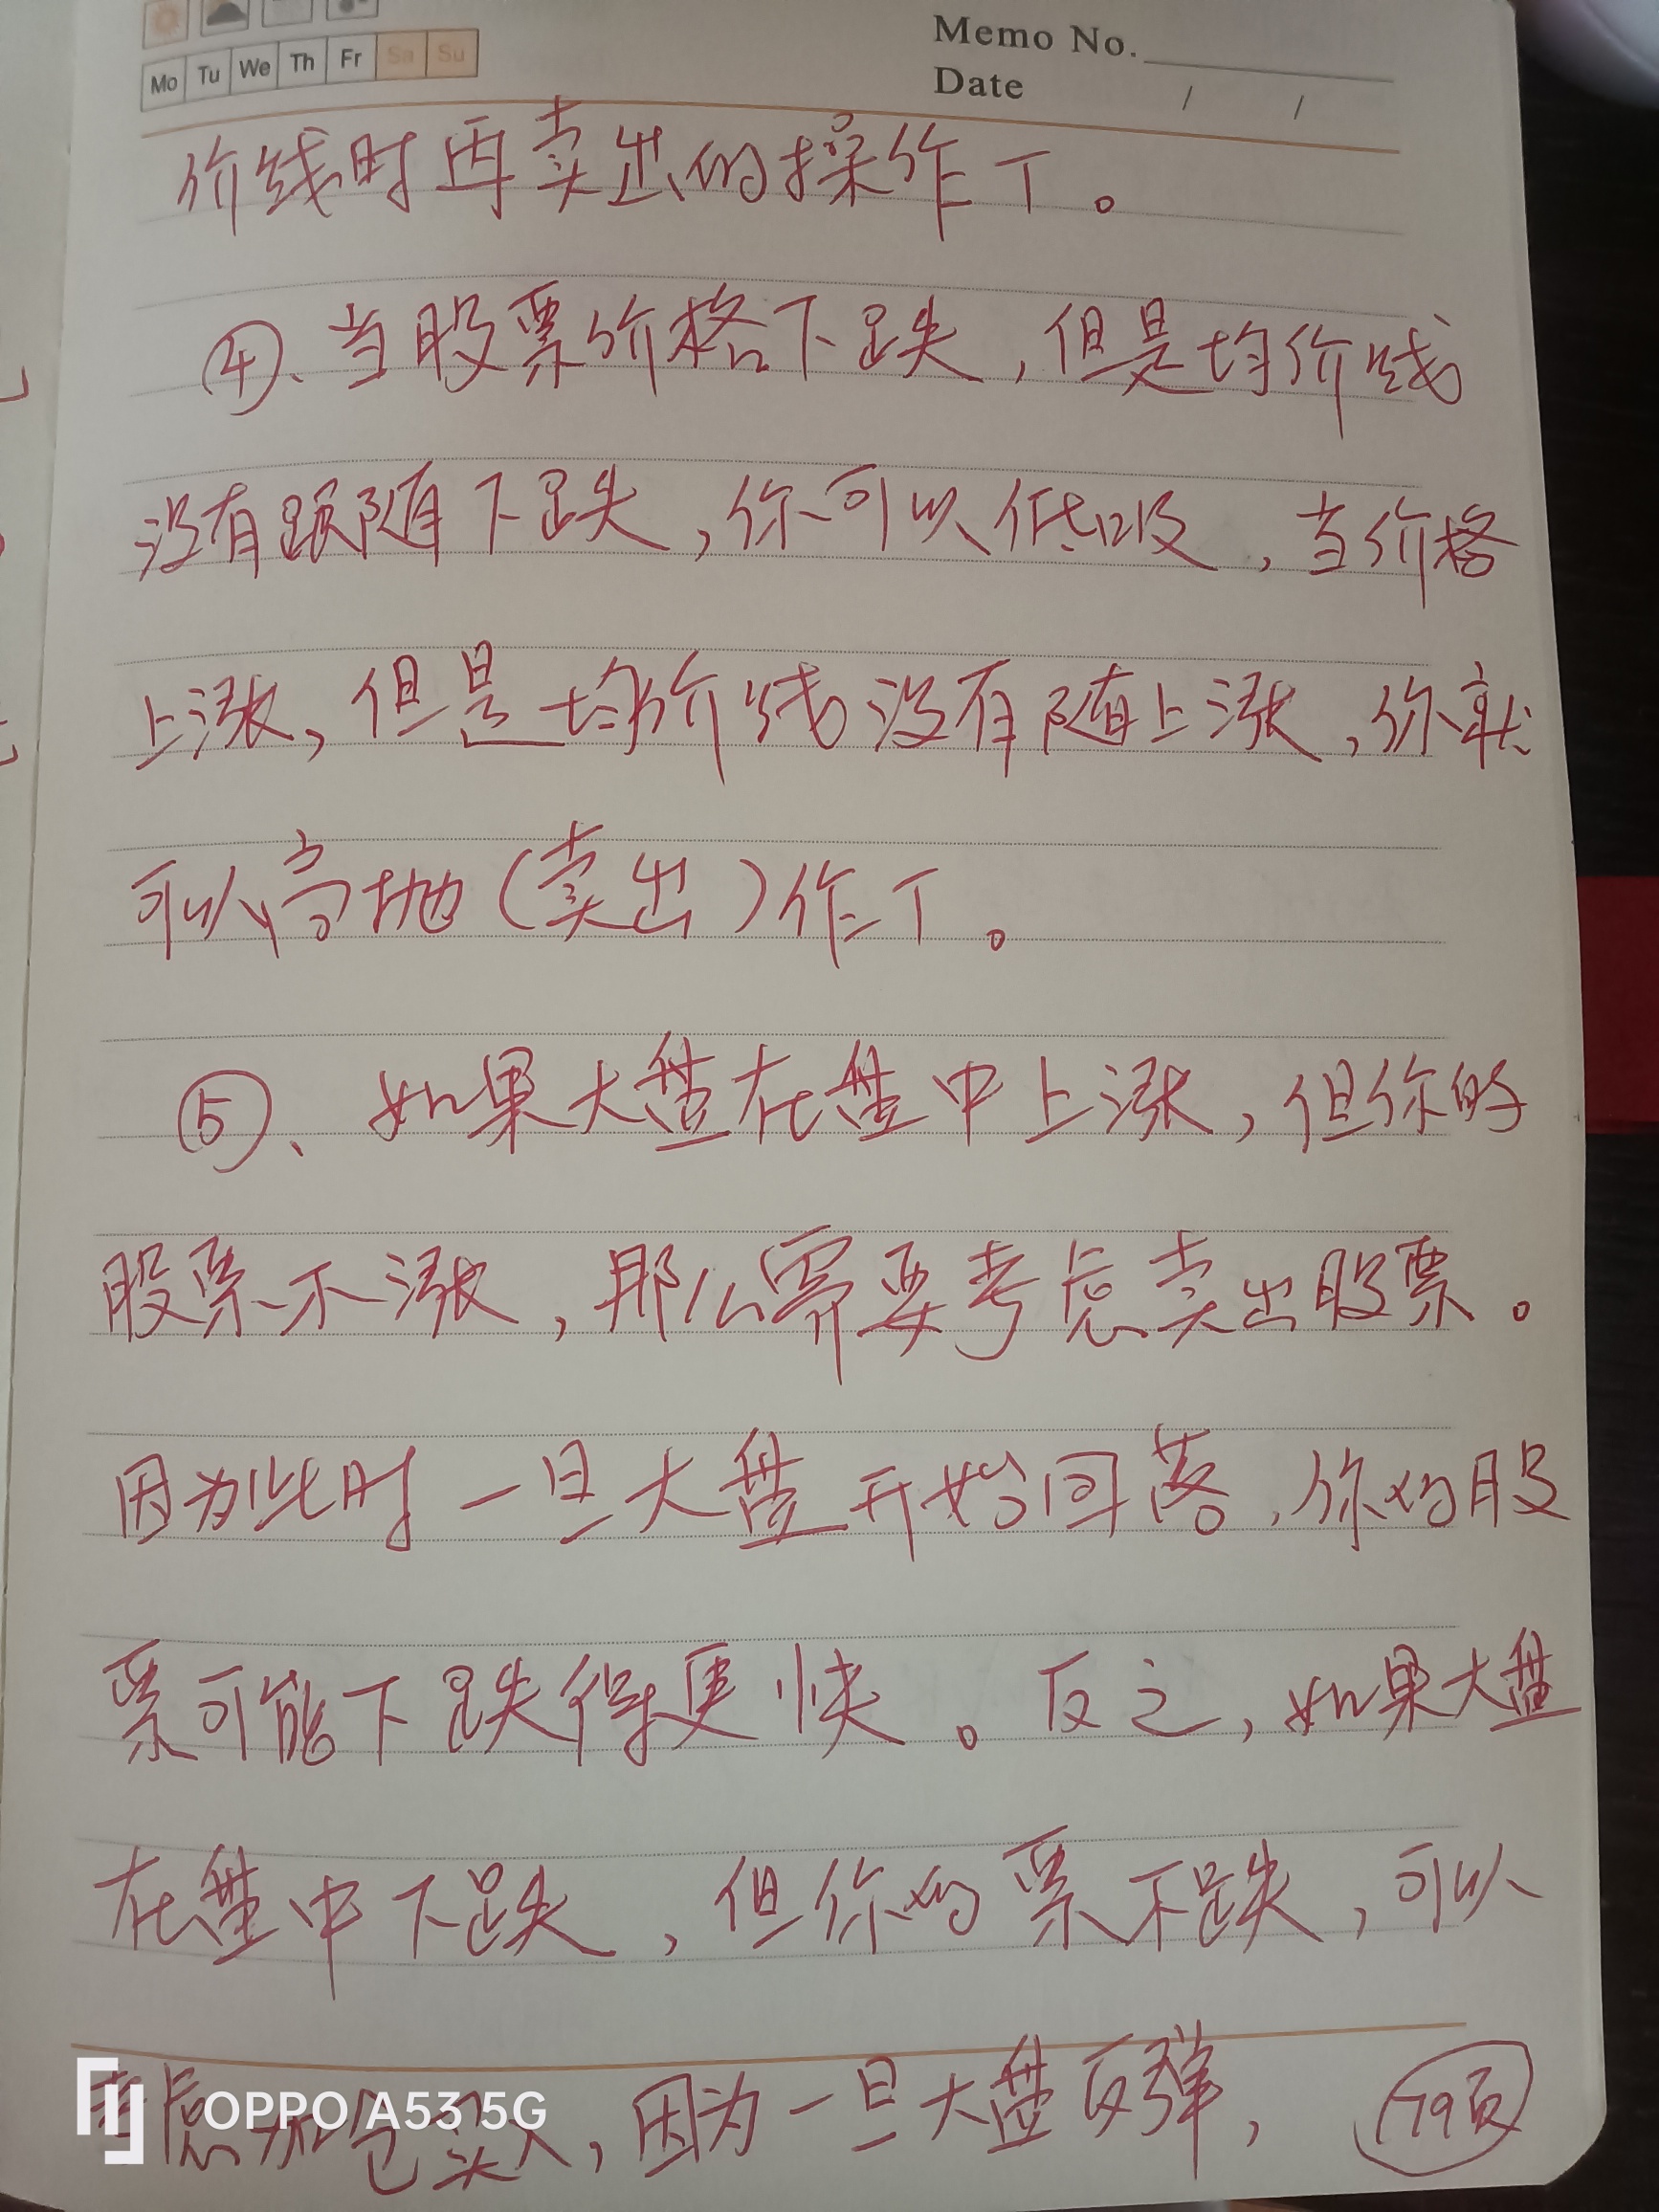 Memo No.
Mo Tu We Th Fr Sa Su
Date / /
价线时再卖出的操作了。
④、当股票价格下跌，但是均价线
没有跟随下跌，你可以低吸，当价格
上涨，但是均价线没有随上涨，你就
可以高抛（卖出）作了。
⑤、如果大盘在盘中上涨，但你的
股票不涨，那么需要考虑卖出股票。
因为此时一旦大盘开始回落，你的股
票可能下跌得更快。反之，如果大盘
在盘中下跌，但你的票不跌，可以
考虑加仓买入，因为一旦大盘反弹，
179页
OPPO A53 5G